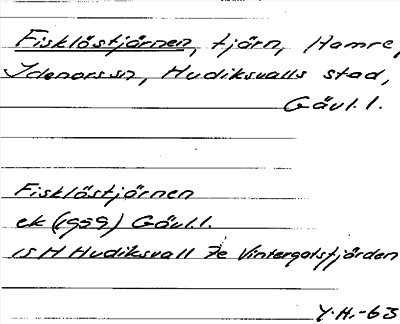 Fisklöstjärnen, tjärn, Hamre,
Idenors sn, Hudiksvalls stad,
Gävl. l.
Fisklöstjärnen
ek (1959) Gävl. l.
15 H Hudiksvall 7e Vintergatsfjärden
Y.H.-63